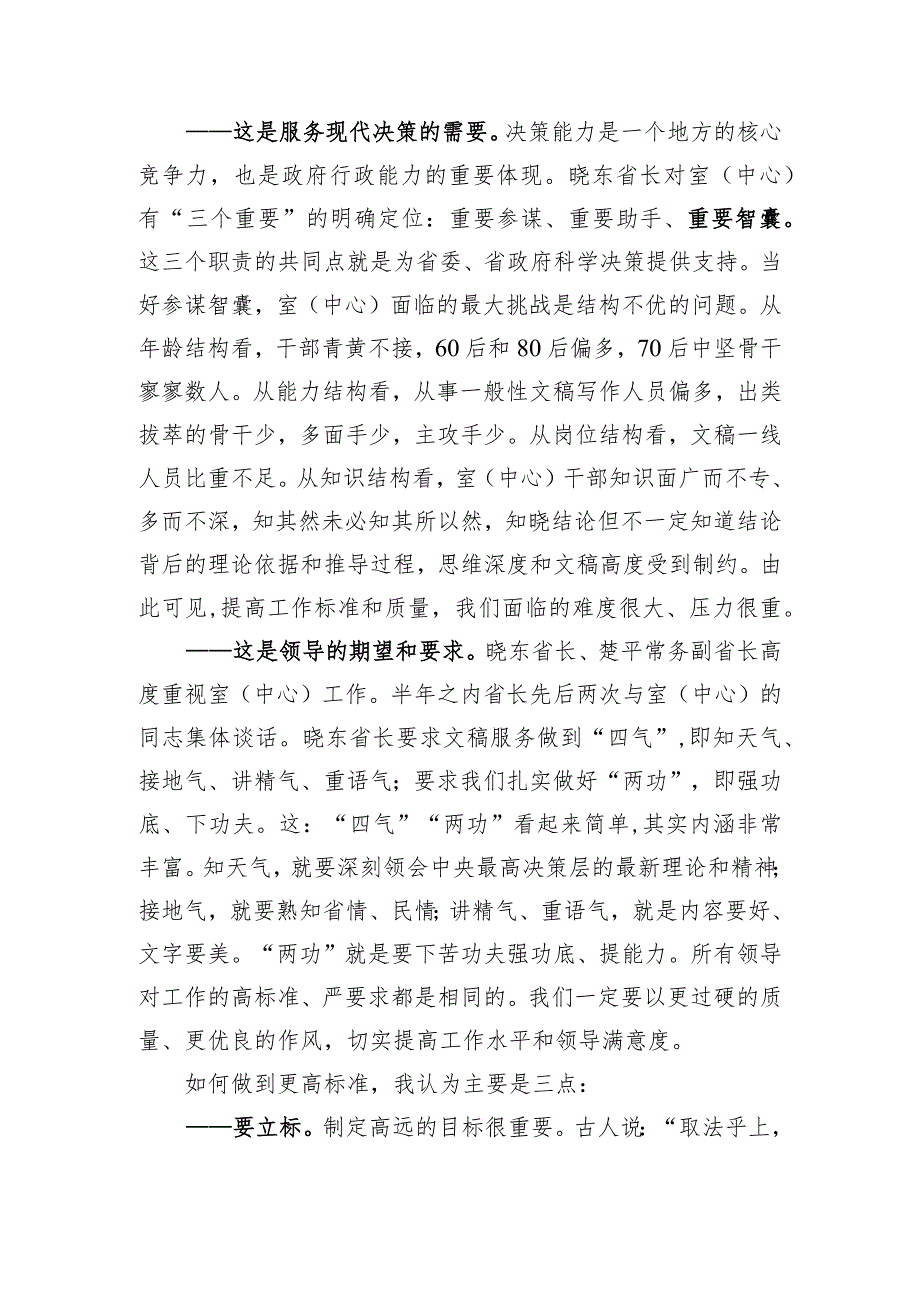 ——这是服务现代决策的需要。决策能力是一个地方的核心
竞争力，也是政府行政能力的重要体现。晓东省长对室（中心）
有“三个重要”的明确定位：重要参谋、重要助手、重要智囊。
这三个职责的共同点就是为省委、省政府科学决策提供支持。当
好参谋智囊，室（中心）面临的最大挑战是结构不优的问题。从
年龄结构看，干部青黄不接，60后和80后偏多，70后中坚骨干
寥寥数人。从能力结构看，从事一般性文稿写作人员偏多，出类
拔萃的骨干少，多面手少，主攻手少。从岗位结构看，文稿一线
人员比重不足。从知识结构看，室（中心）干部知识面广而不专、
多而不深，知其然未必知其所以然，知晓结论但不一定知道结论
背后的理论依据和推导过程，思维深度和文稿高度受到制约。由
此可见,提高工作标准和质量，我们面临的难度很大、压力很重。
——这是领导的期望和要求。晓东省长、楚平常务副省长高
度重视室（中心）工作。半年之内省长先后两次与室（中心）的
同志集体谈话。晓东省长要求文稿服务做到“四气”,即知天气、
接地气、讲精气、重语气；要求我们扎实做好“两功”，即强功
底、下功夫。这：“四气”“两功”看起来简单,其实内涵非常
丰富。知天气，就要深刻领会中央最高决策层的最新理论和精神；
接地气，就要熟知省情、民情；讲精气、重语气，就是内容要好、
文字要美。“两功”就是要下苦功夫强功底、提能力。所有领导
对工作的高标准、严要求都是相同的。我们一定要以更过硬的质
量、更优良的作风，切实提高工作水平和领导满意度。
如何做到更高标准，我认为主要是三点：
——要立标。制定高远的目标很重要。古人说：“取法乎上，